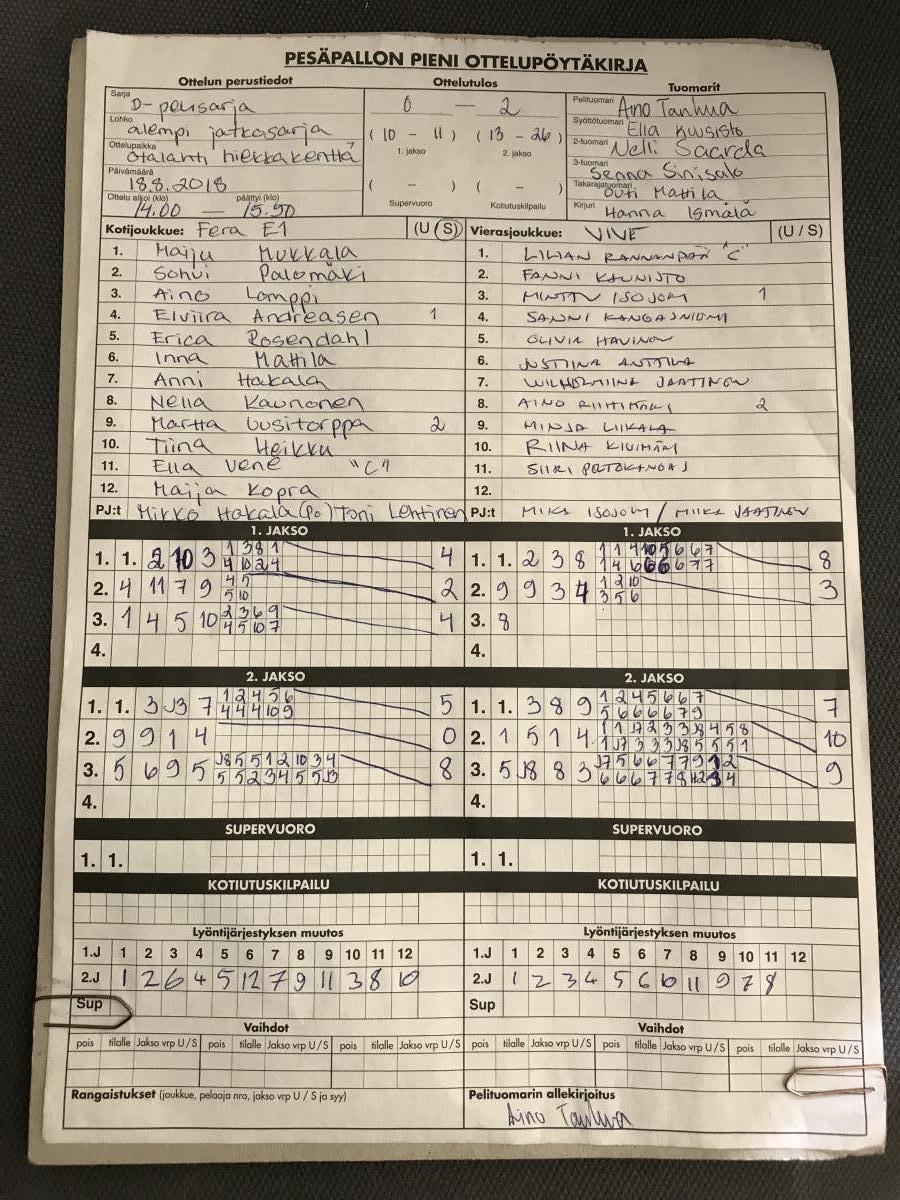 PESÄPALLON PIENI OTTELUPÖYTÄKIRJA
Ottelun perustiedot
Sarja
D-
Lohko
alempi jatkosarja
Ottelupaikka
hiekkakenttä
Päivämäärä
18.8.2018
Ottelu alkoi (klo) päättyi (klo)
14.00 — 15.50
Ottelutulos
0 — 2
(10 - 11) (13 - 26)
1. jakso 2. jakso
( - ) ( - )
Supervuoro Kotiutuskilpailu
Tuomarit
Pelituomari Aino Tanhua
Syöttötuomari Ella Kuusisto
2-tuomari Nelli Saarda
3-tuomari Senna Sinisalo
Takarajatuomari Outi Mattila
Kirjuri Hanna Ismälä
Kotijoukkue: Fera E1 (U/S)
1. Maiju Mukkala
2. Sohvi Palomäki
3. Aino Lamppi
4. Elviira Andreasen 1
5. Erica Rosendahl
6. Inna Mattila
7. Anni Hakala
8. Nella Kaunonen
9. Martta Uusitorppa 2
10. Tiina Heikku
11. Ella Vene "C"
12. Maija Kopra
PJ:t Mikko Hakala (Po) Toni Lehtinen
Vierasjoukkue: VIVE (U/S)
1. LILIAN "C"
2. FANNI KAUNISTO
3. MINTTU ISOJOKI 1
4. SANNI KANGASNIEMI
5. OLIVIA HAVINOV
6. JUSTIINA ANTTILA
7. WILHELMIINA JAATINEN
8. AINO RIIHIMÄKI 2
9. MINJA LIIKALA
10. RIINA KIVIMÄKI
11. SIIRI PELTOKANGAS
12.
PJ:t MIKA ISOJOKI / MIIKA JAATINEN
1. JAKSO
1. 1. 2 10 3 4
1 3 8 1
4 10 2 4
2. 4 11 7 9 2
4 5
5 10
3. 1 4 5 10 4
2 3 6 9
4 5 10 7
4.
1. JAKSO
1. 1. 2 3 8 8
1 1 4 10 5 6 6 7
1 4 6 6 6 6 7 7
2. 9 9 3 4 3
1 2 10
3 5 6
3. 8
4.
2. JAKSO
1. 1. 3 J3 7 5
1 2 4 5 6
4 4 4 10 9
2. 9 9 1 4 0
3. 5 6 9 5 8
J8 5 5 1 2 10 3 4
5 5 2 3 4 5 5 J3
4.
2. JAKSO
1. 1. 3 8 9 7
1 2 4 5 6 6 7
5 6 6 6 6 7 9
2. 1 5 1 4 10
1 1 J7 2 3 3 J8 4 5 8
1 J7 3 3 3 J8 5 5 5 1
3. 5 J8 8 3 9
J7 5 6 6 7 7 9 1 2
6 6 6 7 7 8 3 4
4.
SUPERVUORO
1. 1.
SUPERVUORO
1. 1.
KOTIUTUSKILPAILU
KOTIUTUSKILPAILU
Lyöntijärjestyksen muutos
1.J 1 2 3 4 5 6 7 8 9 10 11 12
2.J 1 2 6 4 5 12 7 9 11 3 8 10
Sup
Lyöntijärjestyksen muutos
1.J 1 2 3 4 5 6 7 8 9 10 11 12
2.J 1 2 3 4 5 6 10 11 9 7 8
Sup
Vaihdot
pois tilalle Jakso vrp U/S pois tilalle Jakso vrp U/S pois tilalle Jakso vrp U/S
Vaihdot
pois tilalle Jakso vrp U/S pois tilalle Jakso vrp U/S pois tilalle Jakso vrp U/S
Rangaistukset (joukkue, pelaaja nro, jakso vrp U / S ja syy)
Pelituomarin allekirjoitus
Aino Tanhua